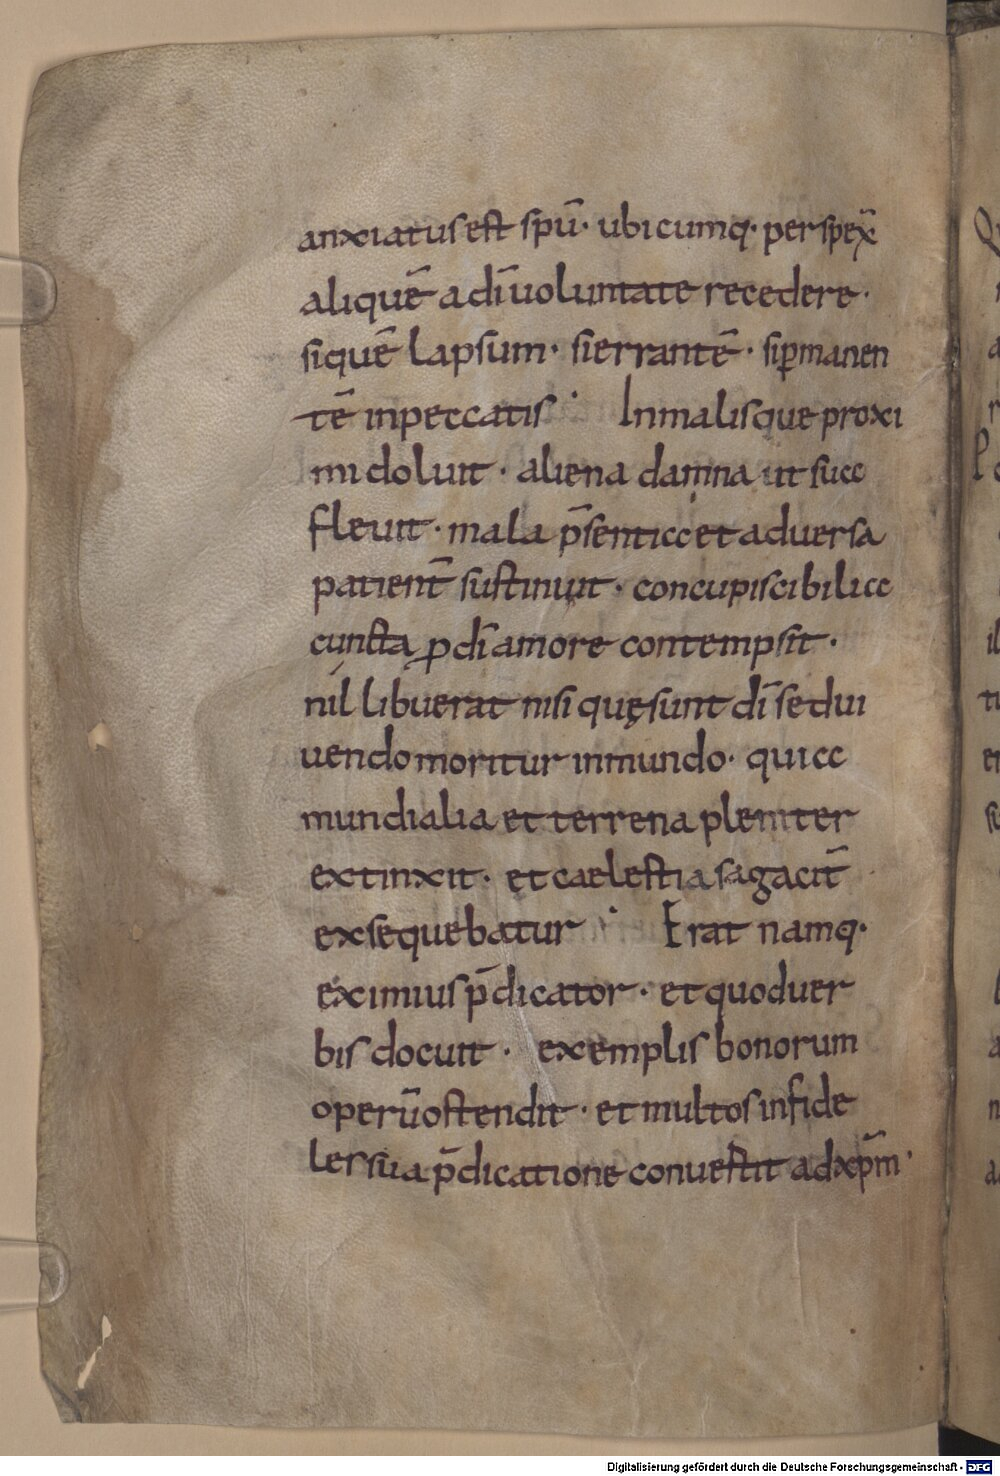 anxiatus est sp̄u· ubicumq· perspex̄
aliquē a dī uoluntate recedere·
si quē lapsum· si errantē· si ꝑmanen
tē in peccatis· In malisque proxi
mi doluit· aliena damna ut sua
fleuit· mala p̄sentia et aduersa
patient̄ sustinuit· concupiscibilia
cuncta ꝑ dī amore contempsit·
nil libuerat nisi quę sunt dī sed ui
uendo moritur in mundo· quia
mundialia et terrena pleniter
extinxit· et caelestia sagacit̄
exsequebatur· Erat namq·
eximius p̄dicator· et quod uer
bis docuit· exemplis bonorum
operū ostendit· et multos infide
les sua p̄dicatione conuertit ad xp̄m·
Digitalisierung gefördert durch die Deutsche Forschungsgemeinschaft - DFG